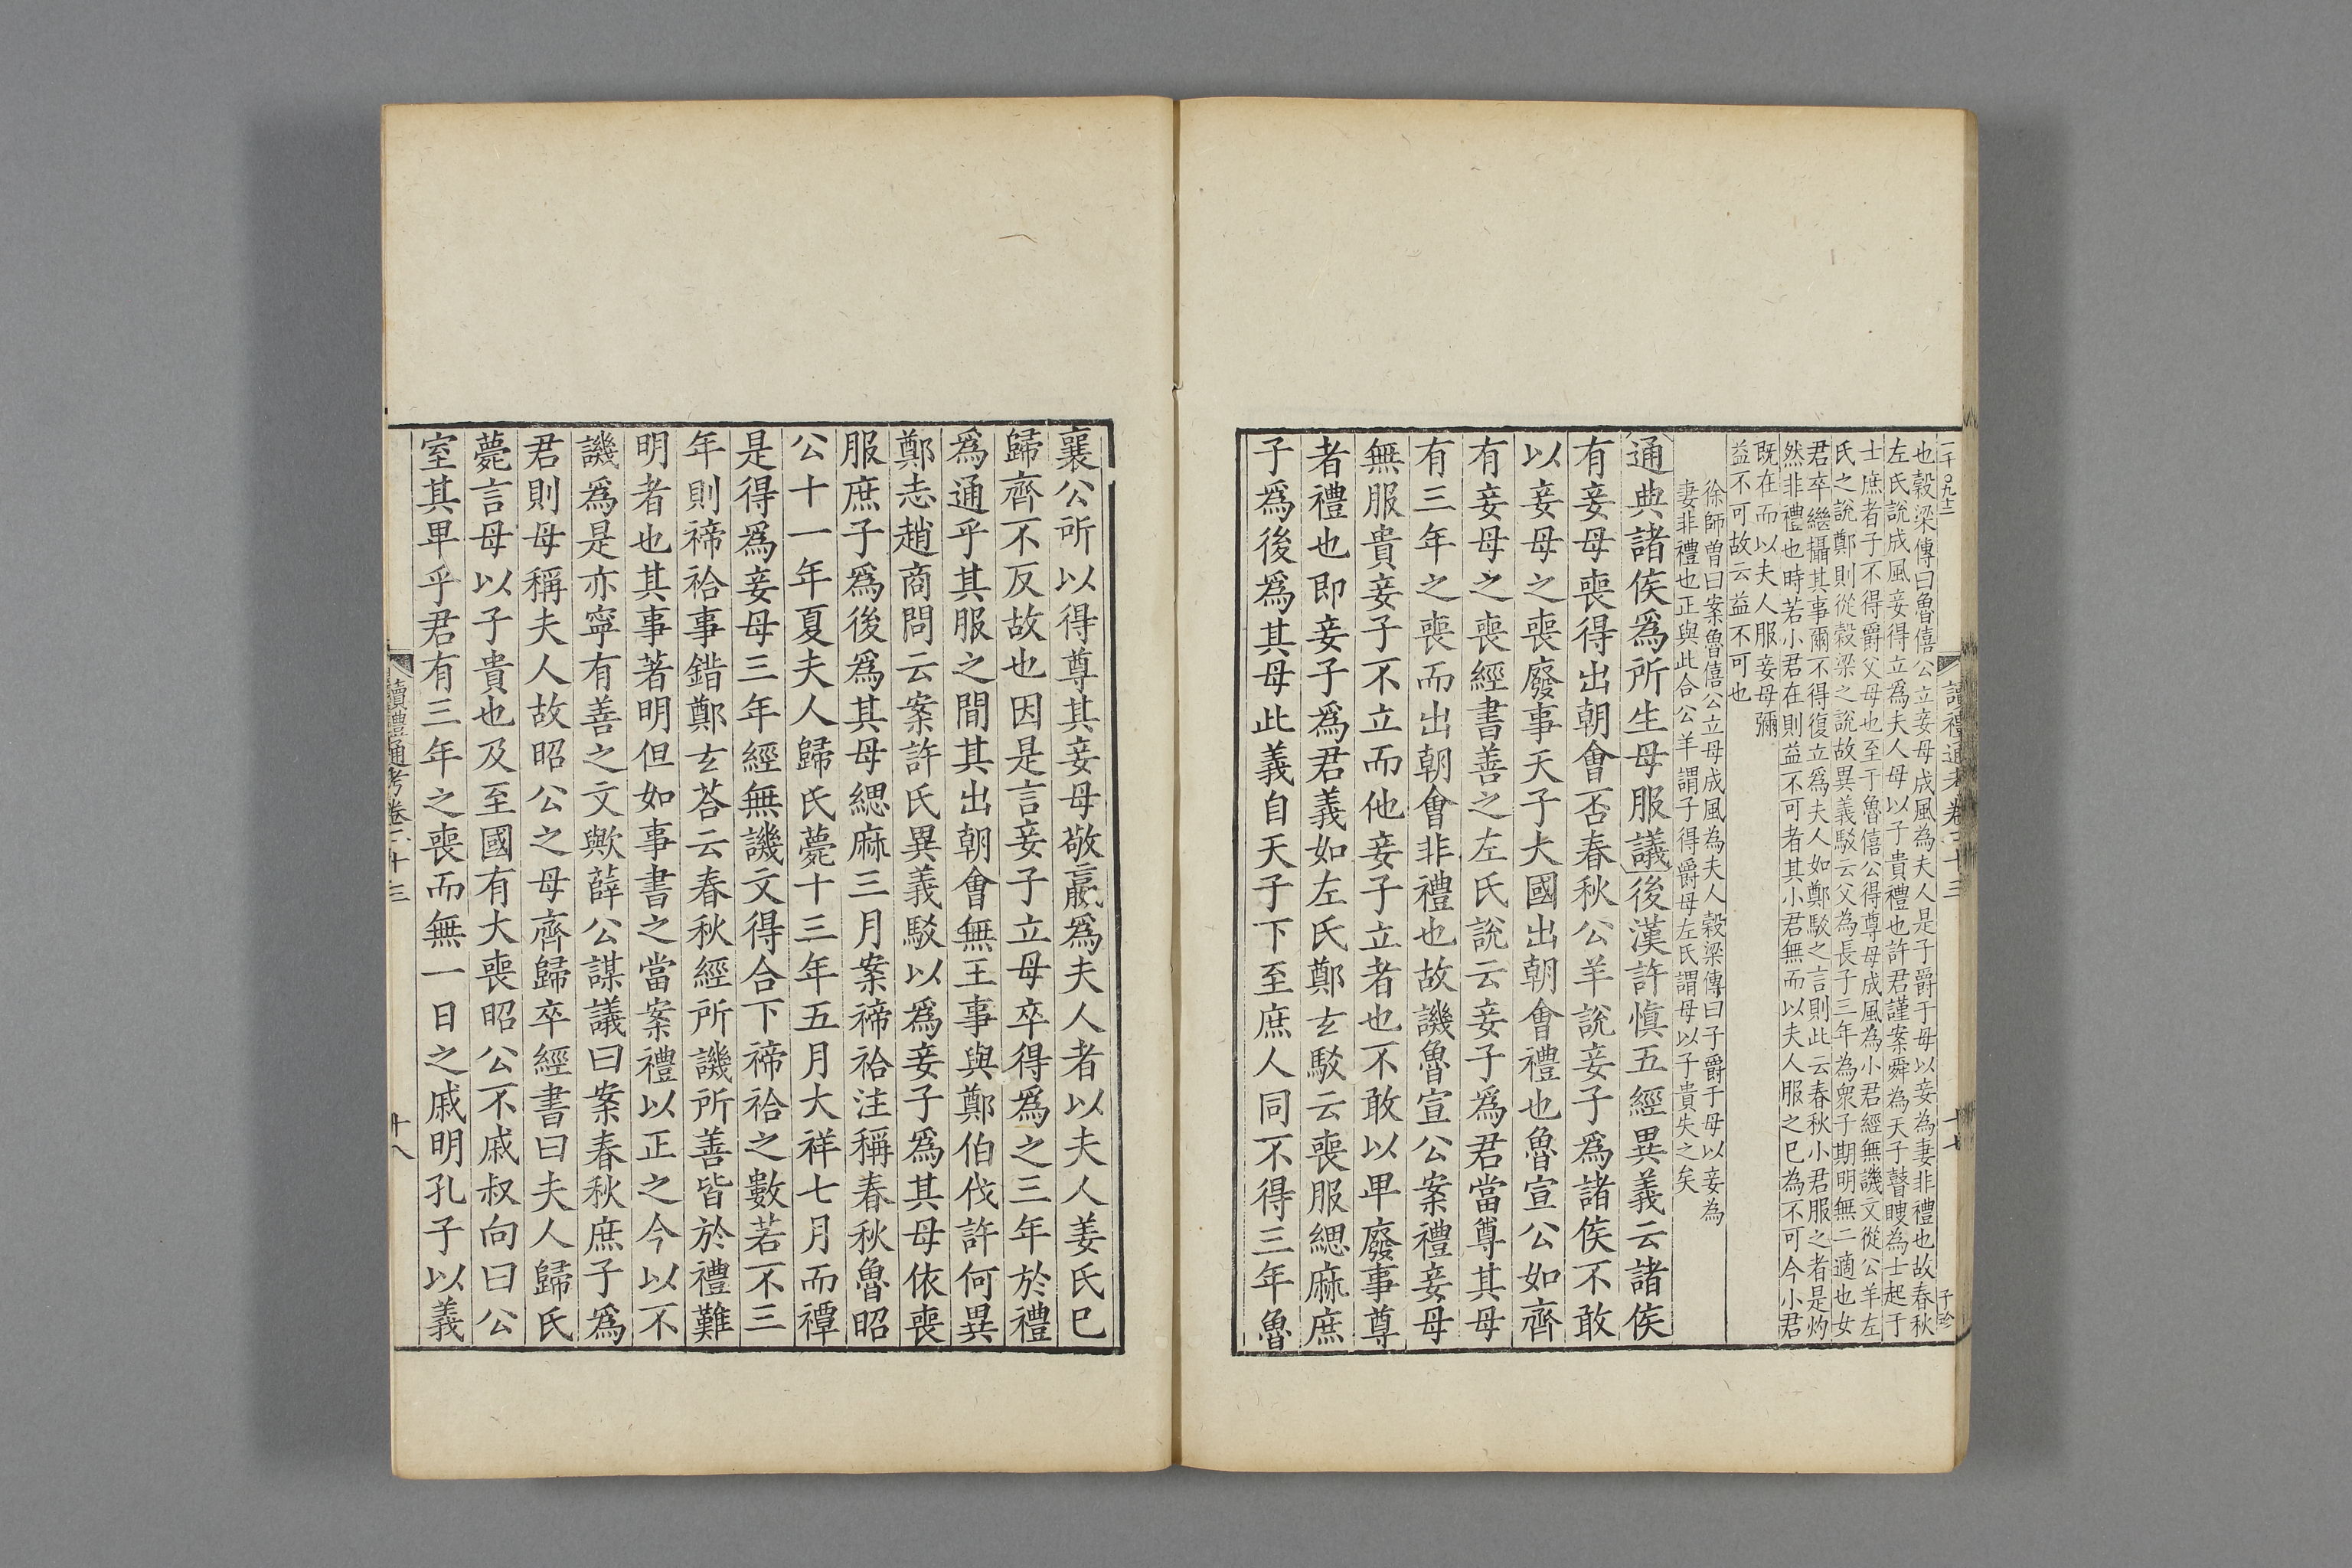 一千〇九十二
讀禮通考卷二十三
十七
子珍
也穀梁傳曰魯僖公立妾母成風為夫人是子爵于母以妾為妻非禮也故春秋
左氏說成風妾得立為夫人母以子貴禮也許君謹案舜為天子瞽瞍為士起于
士庶者子不得爵父母也至于魯僖公得尊母成風為小君經無譏文從公羊左
氏之說鄭則從穀梁之說故異義駁云父為長子三年為衆子期明無二適也女
君卒繼攝其事爾不得復立為夫人如鄭駁之言則此云春秋小君服之者是灼
然非禮也時若小君在則益不可者其小君無而以夫人服之已為不可今小君
既在而以夫人服妾母彌
益不可故云益不可也
徐師曾曰案魯僖公立母成風為夫人穀梁傳曰子爵于母以妾為
妻非禮也正與此合公羊謂子得爵母左氏謂母以子貴失之矣
通典諸侯爲所生母服議後漢許愼五經異義云諸侯
有妾母喪得出朝會否春秋公羊說妾子爲諸侯不敢
以妾母之喪廢事天子大國出朝會禮也魯宣公如齊
有妾母之喪經書善之左氏說云妾子爲君當尊其母
有三年之喪而出朝會非禮也故譏魯宣公案禮妾母
無服貴妾子不立而他妾子立者也不敢以卑廢事尊
者禮也即妾子爲君義如左氏鄭玄駁云喪服緦麻庶
子爲後爲其母此義自天子下至庶人同不得三年魯
襄公所以得尊其妾母敬嬴爲夫人者以夫人姜氏已
歸齊不反故也因是言妾子立母卒得爲之三年於禮
爲通乎其服之間其出朝會無王事與鄭伯伐許何異
鄭志趙商問云案許氏異義駁以爲妾子爲其母依喪
服庶子爲後爲其母緦麻三月案禘祫注稱春秋魯昭
公十一年夏夫人歸氏薨十三年五月大祥七月而禫
是得爲妾母三年經無譏文得合下禘祫之數若不三
年則禘祫事錯鄭玄荅云春秋經所譏所善皆於禮難
明者也其事著明但如事書之當案禮以正之今以不
譏爲是亦寧有善之文歟薛公謀議曰案春秋庶子爲
君則母稱夫人故昭公之母齊歸卒經書曰夫人歸氏
薨言母以子貴也及至國有大喪昭公不戚叔向曰公
室其卑乎君有三年之喪而無一日之戚明孔子以義
讀禮通考卷二十三
十八